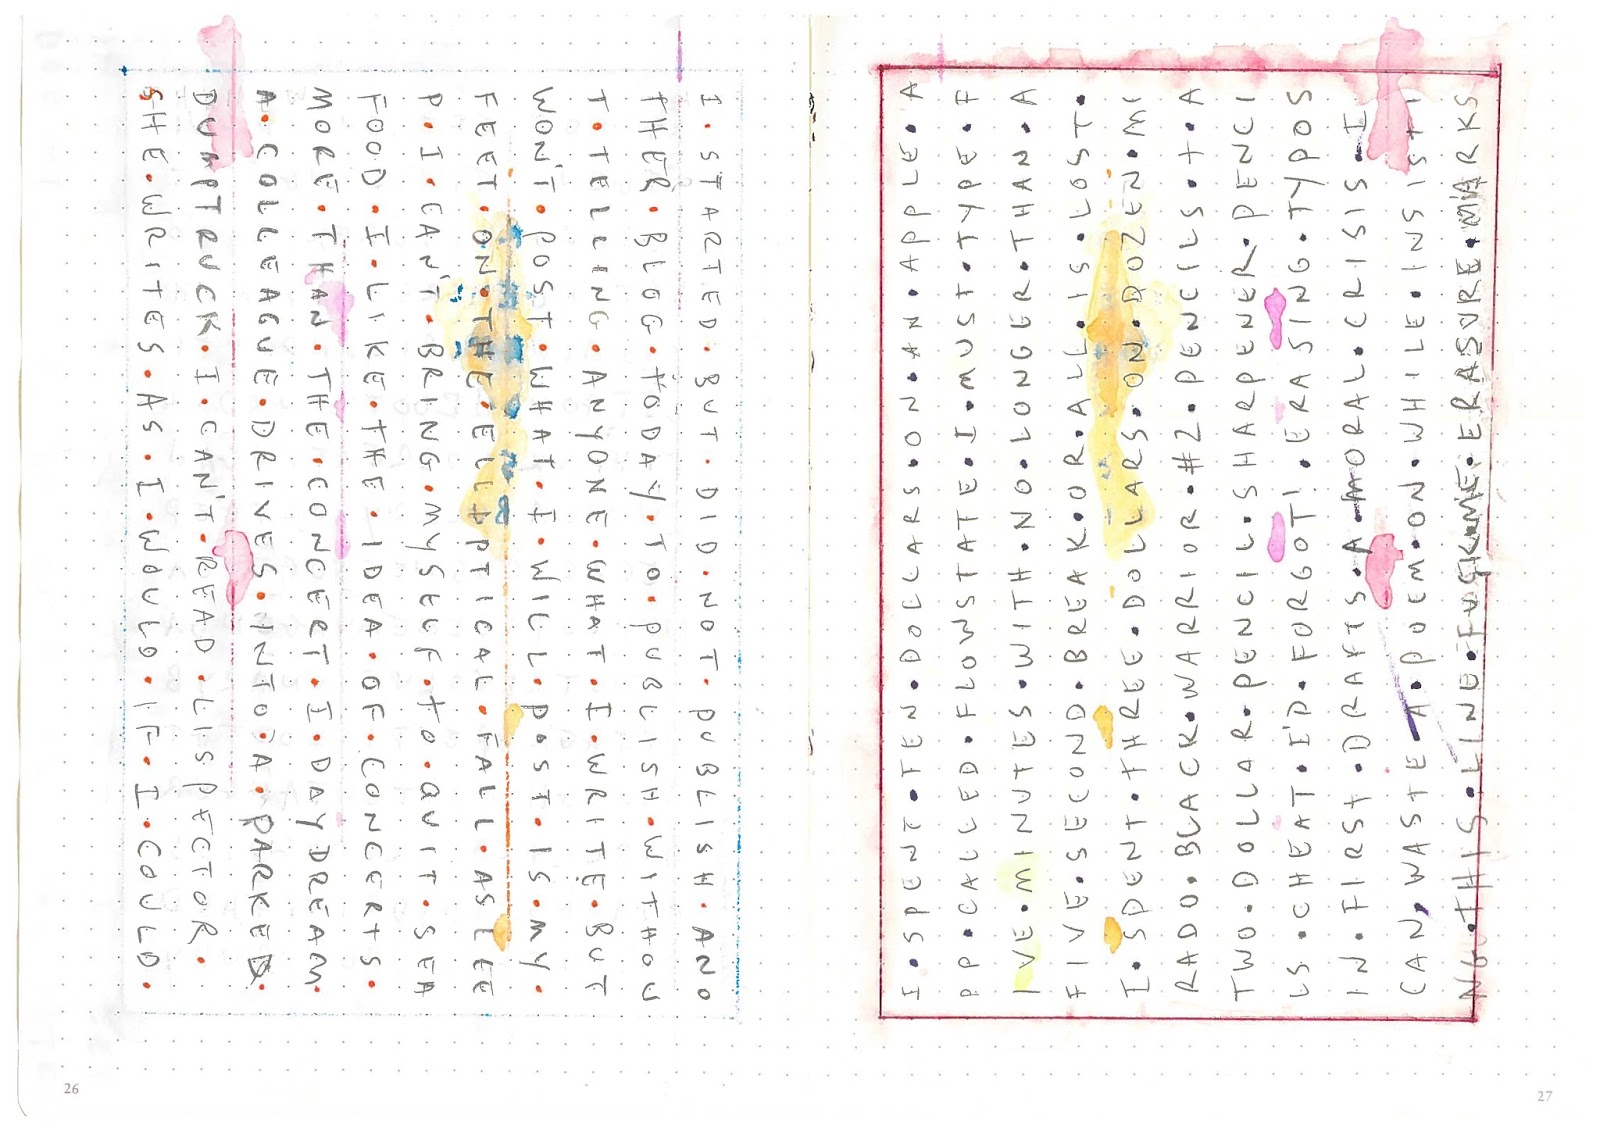 I·STARTED·BUT·DID·NOT·PUBLISH·ANO
THER·BLOG·TODAY·TO·PUBLISH·WITHOU
T·TELLING·ANYONE·WHAT·I·WRITE·BUT
WON'T·POST·WHAT·I·WILL·POST·IS·MY·
FEET·ON·THE·ELLIPTICAL·FALL·ASLEE
P·I·CAN'T·BRING·MYSELF·TO·QUIT·SEA
FOOD·I·LIKE·THE·IDEA·OF·CONCERTS·
MORE·THAN·THE·CONCERT·I·DAYDREAM·
A·COLLEAGUE·DRIVES·INTO·A·PARKED·
DUMPTRUCK·I·CAN'T·READ·LISPECTOR·
SHE·WRITES·AS·I·WOULD·IF·I·COULD·
26
I·SPENT·TEN·DOLLARS·ON·AN·APPLE·A
PP·CALLED·FLOWSTATE·I·MUST·TYPE·F
IVE·MINUTES·WITH·NO·LONGER·THAN·A
FIVE·SECOND·BREAK·OR·ALL·IS·LOST·
I·SPENT·THREE·DOLLARS·ON·DOZEN·MI
RADO·BLACK·WARRIOR·#2·PENCILS·+·A
TWO·DOLLAR·PENCIL·SHARPENER·PENCI
LS·CHEAT·I'D·FORGOT!·ERASING·TYPOS
IN·FIRST·DRAFTS·A·MORAL·CRISIS·I
CAN·WASTE·A·POEM·ON·WHILE·INSISTI
NG·THIS·LINE·FUCK·ME·ERASURE·MARKS
27